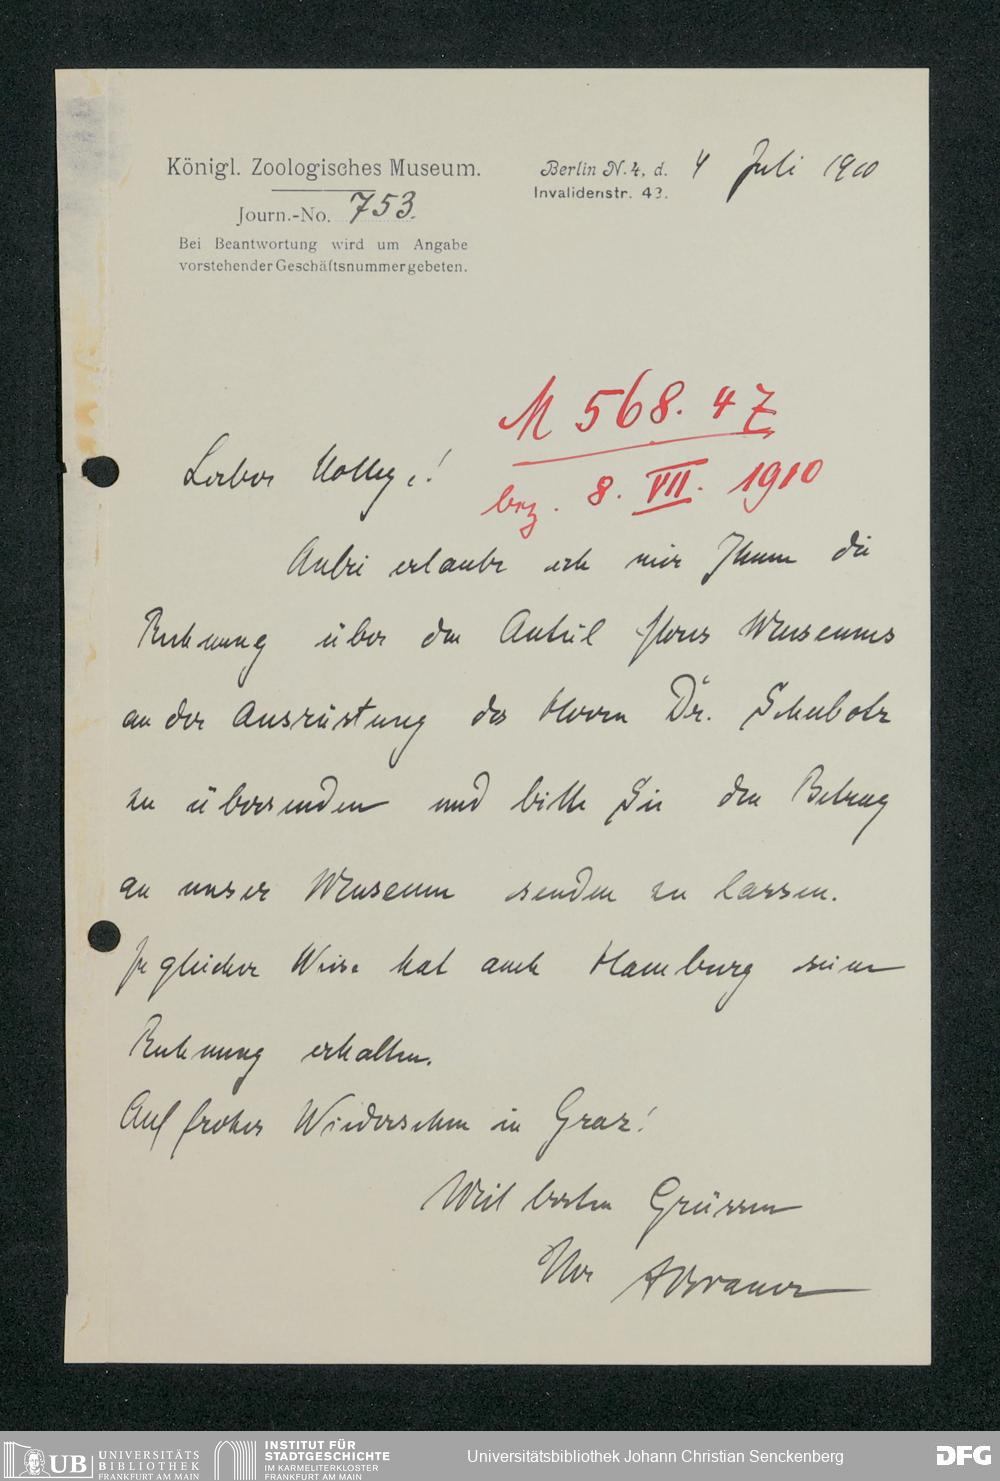 Königl. Zoologisches Museum.
Journ.-No. 753.
Bei Beantwortung wird um Angabe
vorstehender Geschäftsnummer gebeten.
Berlin N. 4, d. 4 Juli 1910
Invalidenstr. 43.
M 568.47
bez. 8. VII. 1910
Lieber Kollege!
Anbei erlaube ich mir Ihnen die
Rechnung über den Anteil Ihres Museums
an der Ausrüstung des Herrn Dr. Schubotz
zu übersenden und bitte Sie den Betrag
an unser Museum senden zu lassen.
In gleicher Weise hat auch Hamburg seine
Rechnung erhalten.
Auf frohes Wiedersehen in Graz!
Mit besten Grüssen
Ihr ABrauer
UB UNIVERSITÄTS
BIBLIOTHEK
FRANKFURT AM MAIN
INSTITUT FÜR
STADTGESCHICHTE
IM KARMELITERKLOSTER
FRANKFURT AM MAIN
Universitätsbibliothek Johann Christian Senckenberg
DFG